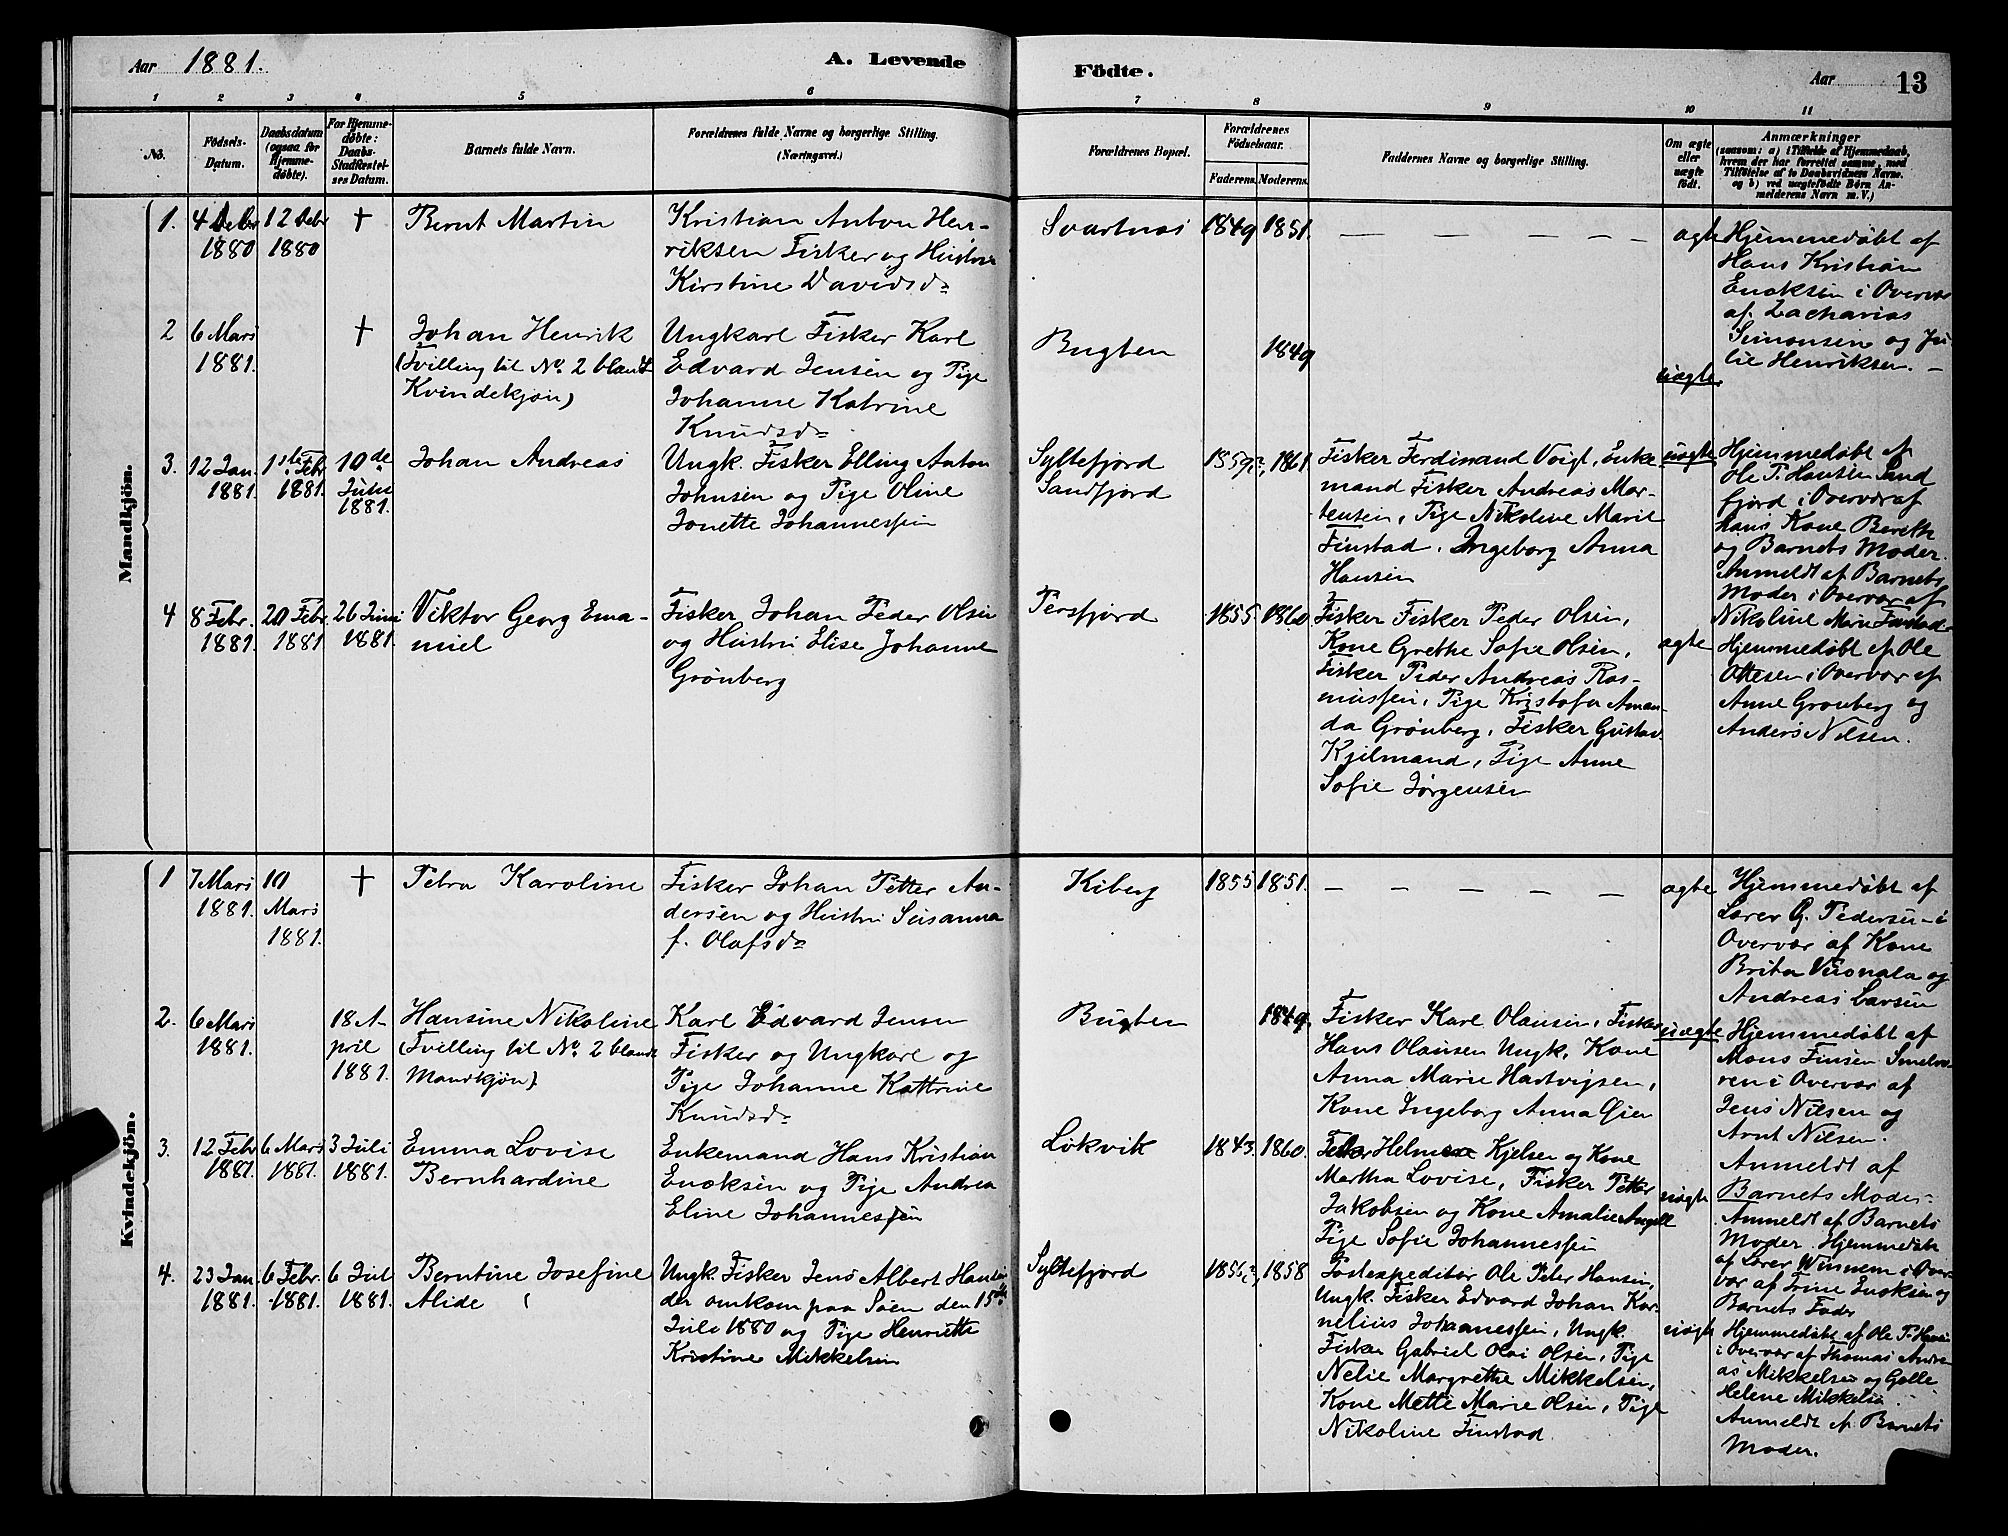 Aar 1881.
A. Levende
Födte.
Aar
13
1
2
3
4
5
6
7
8
9
10
11
No.
Födsels-
Datum.
Daabsdatum
(ogsaa for
Hjemme-
döbte).
For Hjemme-
döbte:
Daabs-
Stadfæstel-
ses Datum.
Barnets fulde Navn.
Forældrenes fulde Navne og borgerlige Stilling.
(Næringsvei.)
Forældrenes Bopæl.
Forældrenes
Födselsaar.
Faderens.
Moderens.
Faddernes Navne og borgerlige Stilling.
Om ægte
eller
uægte
födt.
Anmærkninger
(saasom: a) i Tilfælde af Hjemmedaab,
hvem der har forrettet samme, med
Tilföielse af to Daabsvidners Navne.
og b) ved uægtefödte Börn An-
melderens Navn m. V.)
Mandkjön.
1.
4 Debr
1880
12 Debr
1880
†
Bernt Martin
Kristian Anton Hen-
riksen Fisker og Hustru
Kirstine Davidsd
Svartnæs
1849
1851.
— — — — — —
ægte
Hjemmedøbt af
Hans Kristian
Enoksen i Overvær
af Zacharias
Simonsen og Ju-
lie Henriksen. —
2
6 Mars
1881.
†
Johan Henrik
(Tvilling til No. 2 blandt
Kvindekjøn)
Ungkarl Fisker Karl
Edvard Jensen og Pige
Johanne Katrine
Knudsd
Bugten
1849
uægte
3.
12 Jan.
1881.
1ste Febr
1881.
10de
Juli
1881.
Johan Andreas
Ungk. Fisker Elling Anton
Johnsen og Pige Oline
Jonette Johannessen
Syltefjord
Sandfjord
1859?,
1861.
Fisker Ferdinand Voigt, Enke-
mand Fisker Andreas Mor-
tensen, Pige Nikoline Marie
Finstad, Ingeborg Anna
Hansen
uægte
Hjemmedøbt af
Ole P. Hansen Sand
fjord i Overvær af
hans Kone Bereth
og Barnets Moder.
Anmeldt af Barnets
Moder i Overvær af
Nikoline Marie Finstad.
4
8 Febr.
1881.
20 Febr.
1881
26 Juni
1881.
Viktor Georg Ema-
nuel
Fisker Johan Peder Olsen
og Hustru Elise Johanne
Grønberg
Persfjord
1855.
1860.
Fisker Fisker Peder Olsen,
Kone Grethe Sofie Olsen,
Fisker Peder Andreas Ras-
mussen, Pige Kristofa Aman-
da Grønberg, Fisker Gustav
Kjelmand, Pige Anne
Sofie Jørgensen
ægte
Hjemmedøbt af Ole
Ottesen i Overvær af
Anne Grønberg og
Anders Nilsen.
Kvindekjön.
1
7 Mars
1881.
10
Mars
1881.
†
Petra Karoline
Fisker Johan Petter An-
dersen og Hustru Susanna
f. Olafsd
Kiberg
1855.
1851.
— — — — —
ægte
Hjemmedøbt af
Lærer G. Pedersen i
Overvær af Kone
Brita og
Andreas Larsen
2.
6 Mars
1881.
18 A-
pril
1881.
Hansine Nikoline
(Tvilling til No. 2 blandt
Mandkjøn)
Karl Edvard Jensen
Fisker og Ungkarl og
Pige Johanne Kathrine
Knudsd
Bugten
1849.
Fisker Karl Olausen, Fisker
Hans Olausen Ungk, Kone
Anna Marie Hartvigsen,
Kone Ingeborg Anna Øien
uægte
Hjemmedøbt af
Mons Finsen Smelro-
ren i Overvær af
Jens Nilsen og
Arnt Nilsen.
Anmeldt af
Barnets Moder
3.
12 Febr
1881.
6 Mars
1881.
3 Juli
1881.
Emma Lovise
Bernhardine
Enkemand Hans Kristian
Enoksen og Pige Andrea
Eline Johannessen
Løkvik
1843.
1860.
Kjelsen og Kone
Martha Lovise, Fisker Petter
Jakobsen og Kone Amalie Angell
Pige Sofie Johannessen
uægte
Anmeldt af Barnets
Moder. Hjemmedøbt
af Lærer Winnem i Over-
vær af Trine Enoksen og
Barnets Fader
4.
23 Jan
1881.
6 Febr.
1881.
6 Jul
1881.
Berntine Josefine
Alide
Ungk. Fisker Jens Albert Hansen
der omkom paa Søen den 15de
Juli 1880 og Pige Henriette
Kristine Mikkelsen
Syltefjord
1856?,
1858
Postexpeditør Ole Peter Hansen,
Ungk. Fisker Edvard Johan Kor-
nelius Johannessen, Ungk.
Fisker Gabriel Olai Olsen, Pige
Nelie Margrethe Mikkelsen,
Kone Mette Marie Olsen, Pige
Nikoline Finstad.
uægte
Hjemmedøbt af Ole P. Hansen
i Overvær af Thomas Andre-
as Mikkelsen og
Helene Mikkelsen.
Anmeldt af Barnets
Moder.